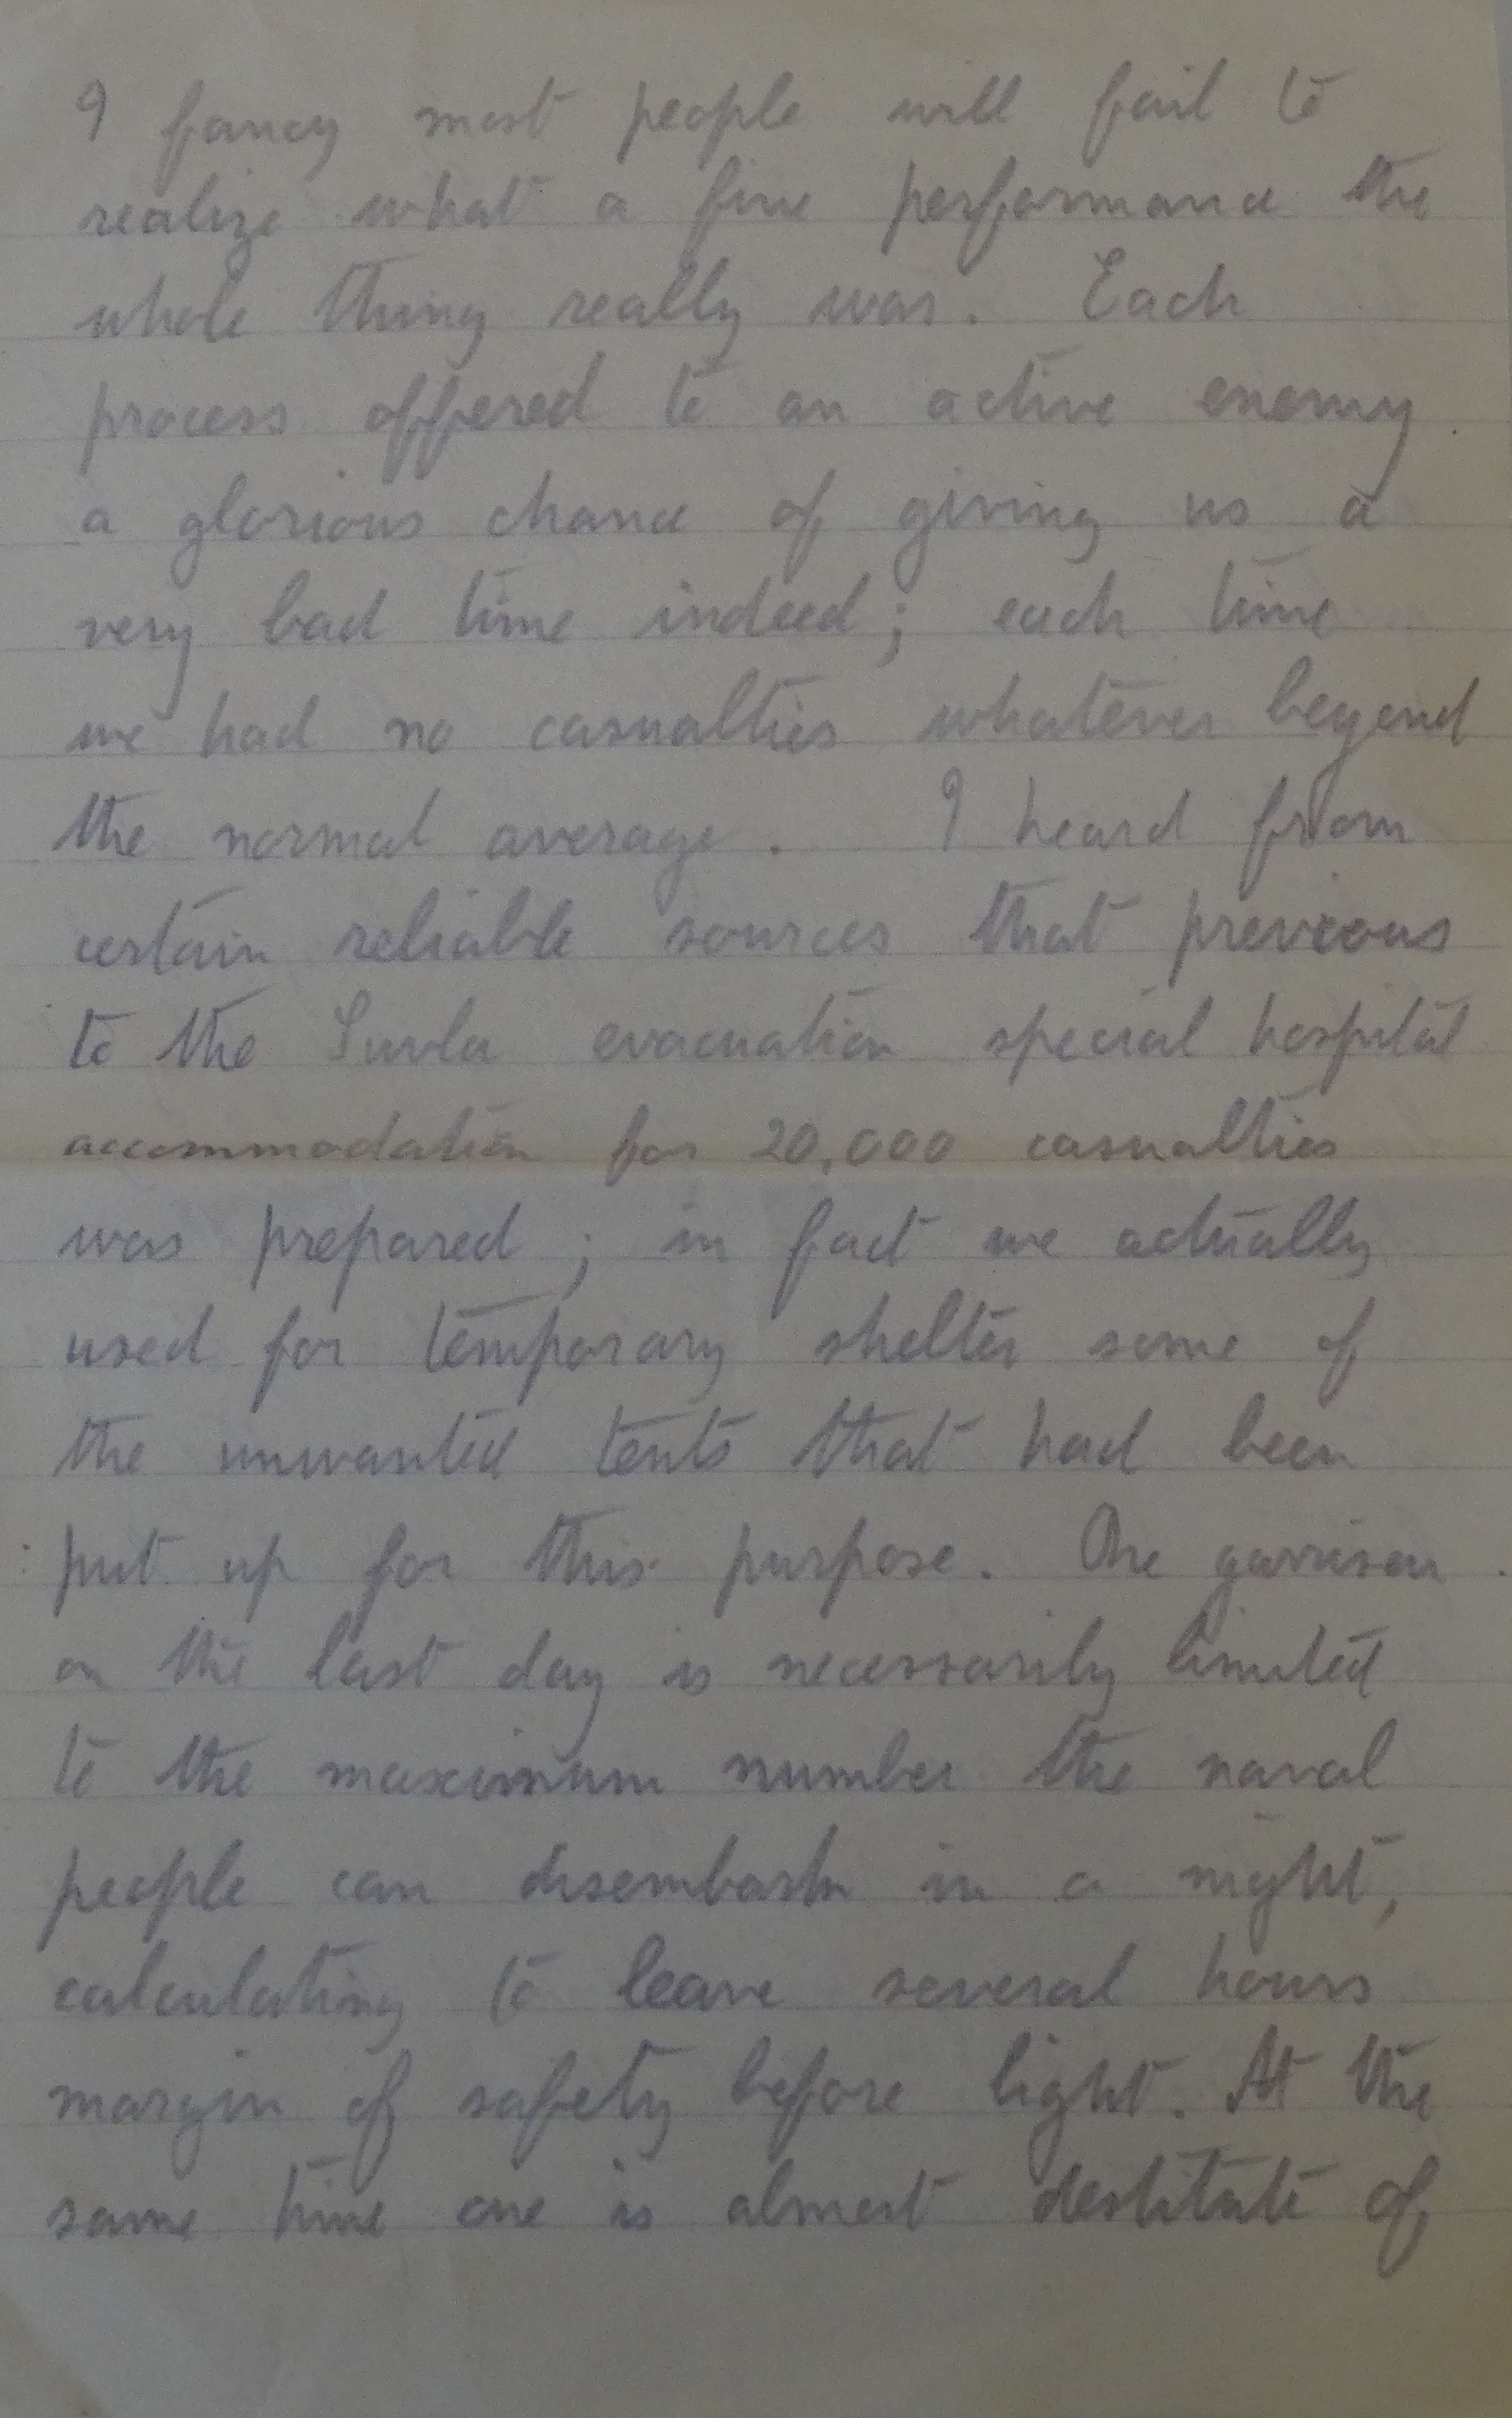 I fancy most people will fail to
realize what a fine performance the
whole thing really was. Each
process offered to an active enemy
a glorious chance of giving us a
very bad time indeed; each time
we had no casualties whatever beyond
the normal average. I heard from
certain reliable sources that previous
to the Suvla evacuation special hospital
accommodation for 20,000 casualties
was prepared; in fact we actually
used for temporary shelter some of
the unwanted tents that had been
put up for this purpose. The garrison
on the last day is necessarily limited
to the maximum number the naval
people can disembark in a night,
calculating to leave several hours
margin of safety before light. At the
same time one is almost destitute of